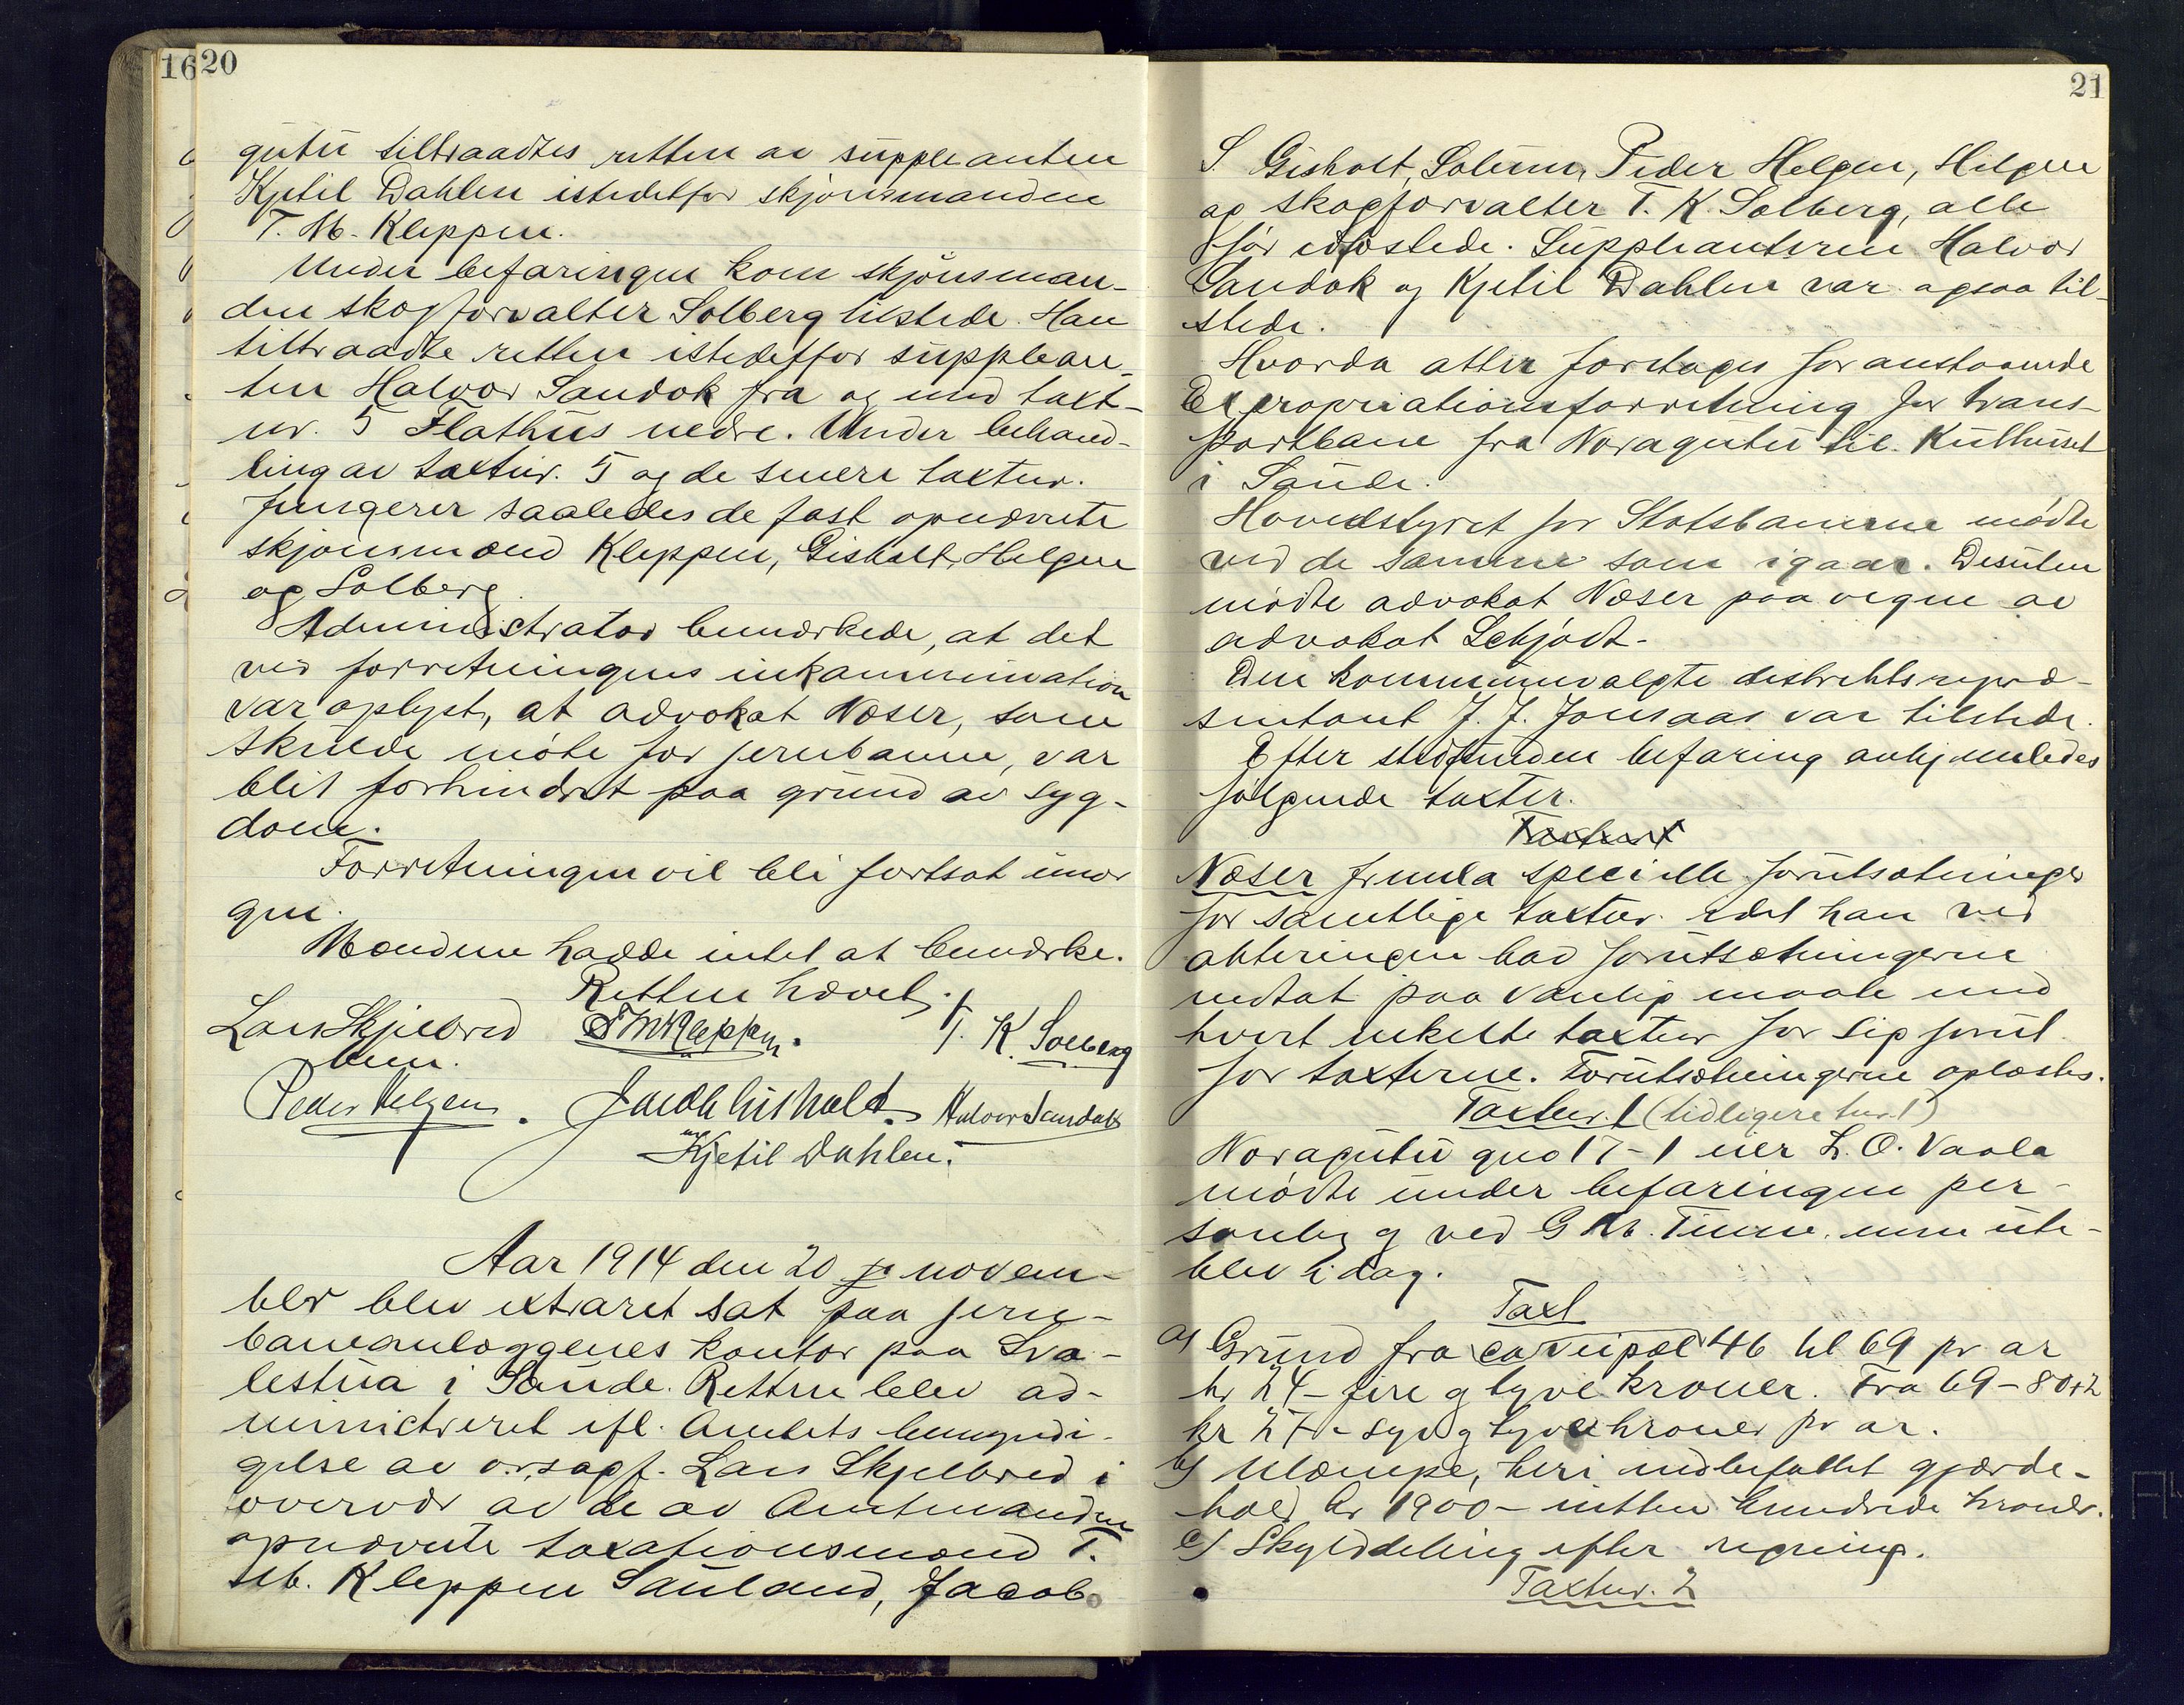 16
20
gutu tiltraadtes retten av suppleanten
Kjetil Dahlen istedetfor skjønsmanden
T. M. Kleppen.
Under befaringen kom skjønsman-
den skogforvalter Solberg tilstede. Han
tiltraadte retten istedetfor supplean-
ten Halvor Sandok fra og med taxt-
nr. 5 Flathus nedre. Under behand-
ling av taxtnr. 5 og de senere taxtnr.
fungerer saaledes de fast opnævnte
skjønsmænd Kleppen, Gisholt, Helgen
og Solberg.
Administrator bemærkede, at det
ved forretningens inkammination
var oplyst, at advokat Næser, som
skulde møte for jernbanen, var
blit forhindret paa grund av syg-
dom.
Forretningen vil bli fortsat imor
gen.
Mændene hadde intet at bemærke.
Retten hævet.
Lars Skjelbred T M Kleppen. T. K. Solberg
Peder Helgen. Jacob Gisholt. Halvor Sandok
Kjetil Dahlen.
Aar 1914 den 20 de novem-
ber blev extraret sat paa jern-
baneanlæggenes kontor paa Sva-
lestua i Saude. Retten blev ad-
ministreret efl. Amtets bemyndi-
gelse av o.r.sagf. Lars Skjelbred i
overvær av de av Amtmanden
opnævnte taxationsmænd T.
M. Kleppen Sauland, Jacob
21
S. Gisholt, Solum, Peder Helgen, Helgen
og skogforvalter T. K. Solberg, alle
før edfæstede. Suppleanterne Halvor
Sandok og Kjetil Dahlen var ogsaa til-
stede.
Hvorda atter foretages foranstaaende
Expropriationsforretning for trans-
portbane fra Noragutu til Kulhuset
i Saude.
Hovedstyret for Statsbanerne mødte
ved de samme som igaar. Desuten
mødte advokat Næser paa vegne av
advokat Schjødt.
Den kommunevalgte distriktsrepræ-
sentant J. J. Jonsaas var tilstede.
Efter stedfunden befaring avhjemledes
følgende taxter.
Næser fremla specielle forutsætninger
for samtlige taxtnr. idet han ved
akteringen bad forutsætningerne
indtat paa vanlig maate med
hvert enkelte taxtnr for sig forut
for taxterne. Forutsætningerne oplæstes.
Taxtnr. 1 (tidligere tnr. 1)
Noragutu gno 17-1 eier H. O. Vaala
mødte under befaringen per-
sonlig og ved G M. Tinne. men ute-
blev i dag.
Taxt
a) Grund fra 46 til 69 pr ar
kr 24 – fire og tyve kroner. Fra 69 – 80+2
kr 27 – syv og tyve kroner pr ar.
b) Ulæmpe, heri indbefattet gjærde-
hold kr 1900 – nitten hundrede kroner.
c) Skylddeling efter regning.
Taxtnr. 2